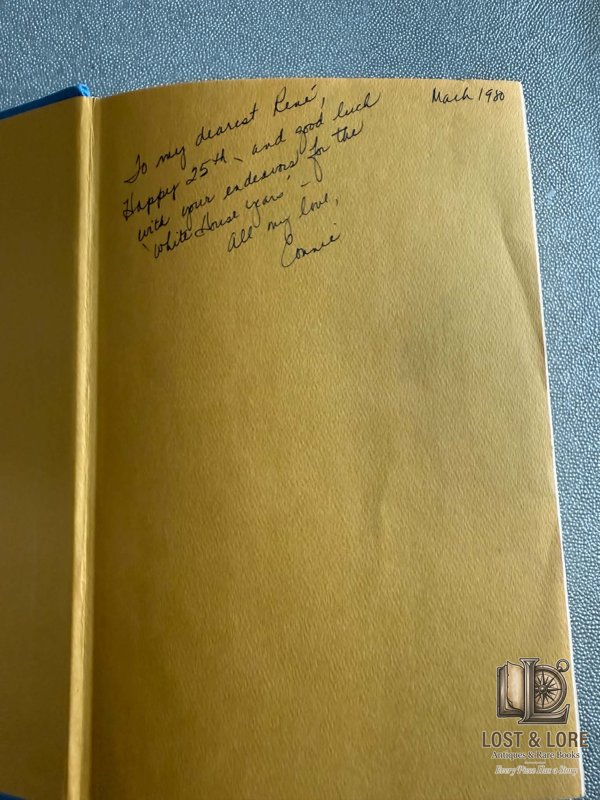 March 1980
To my dearest René,
Happy 25th, and good luck
with your endeavors for the
'White House Years' -
All my love,
Connie
LOST & LORE
Antiques & Rare Books
Every Piece Has a Story